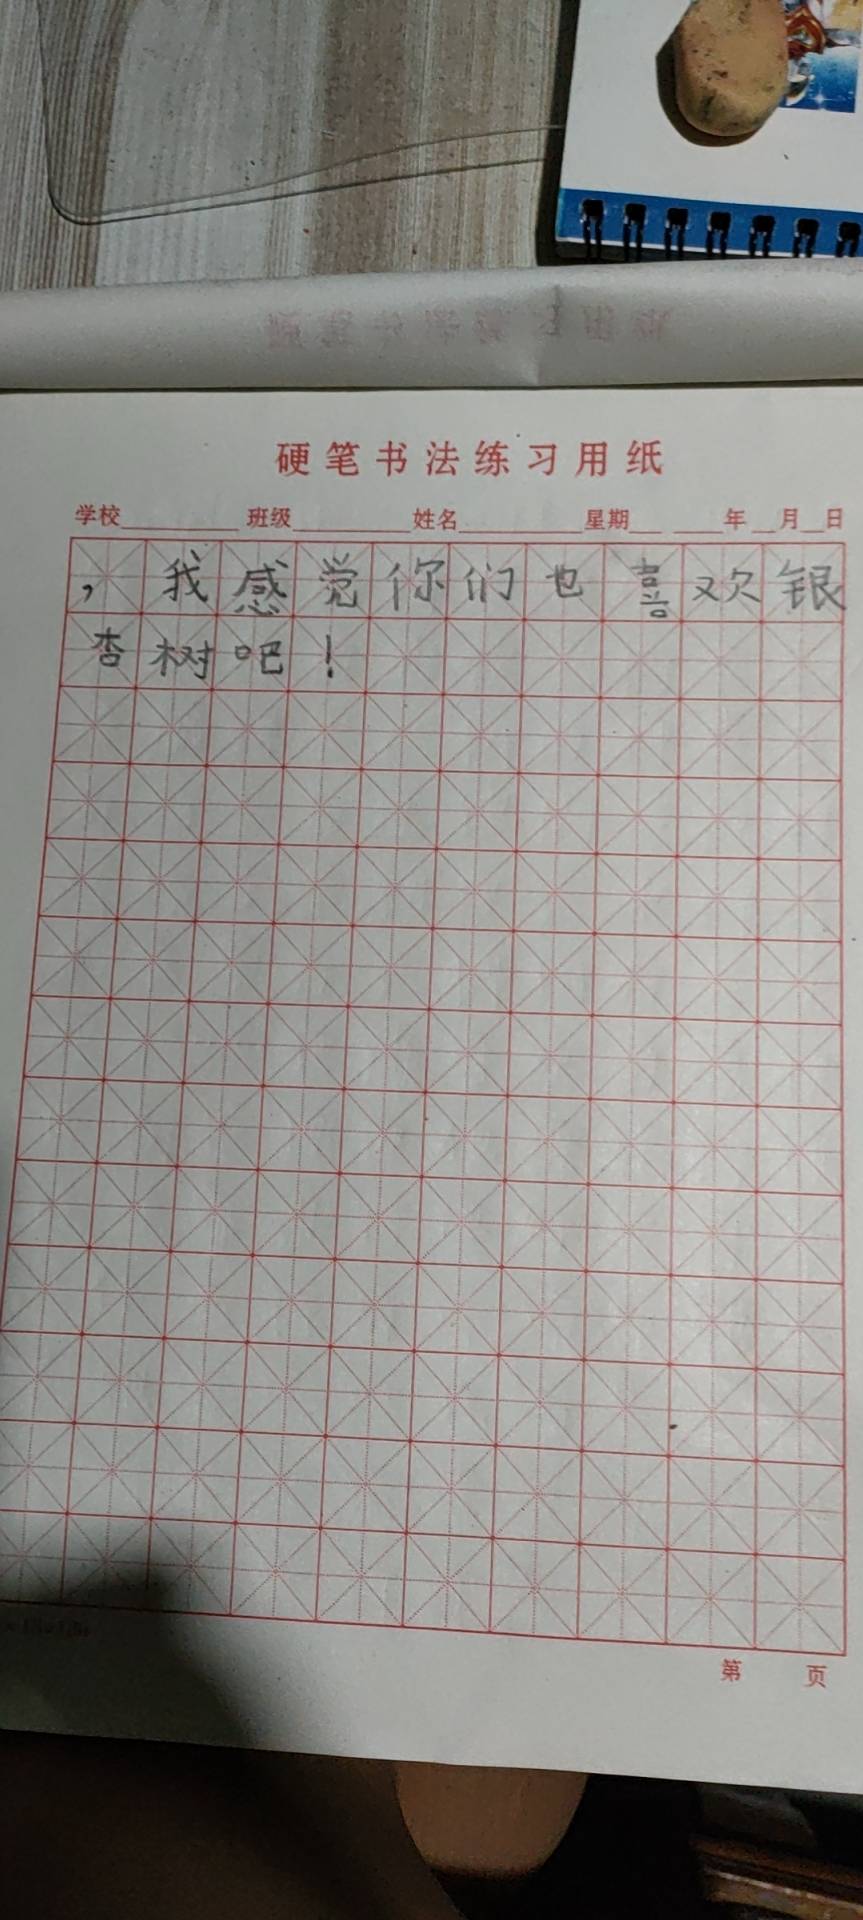 硬笔书法练习用纸
学校 班级 姓名 星期 年 月 日
，我感觉你们也喜欢银
杏树吧！
第 页